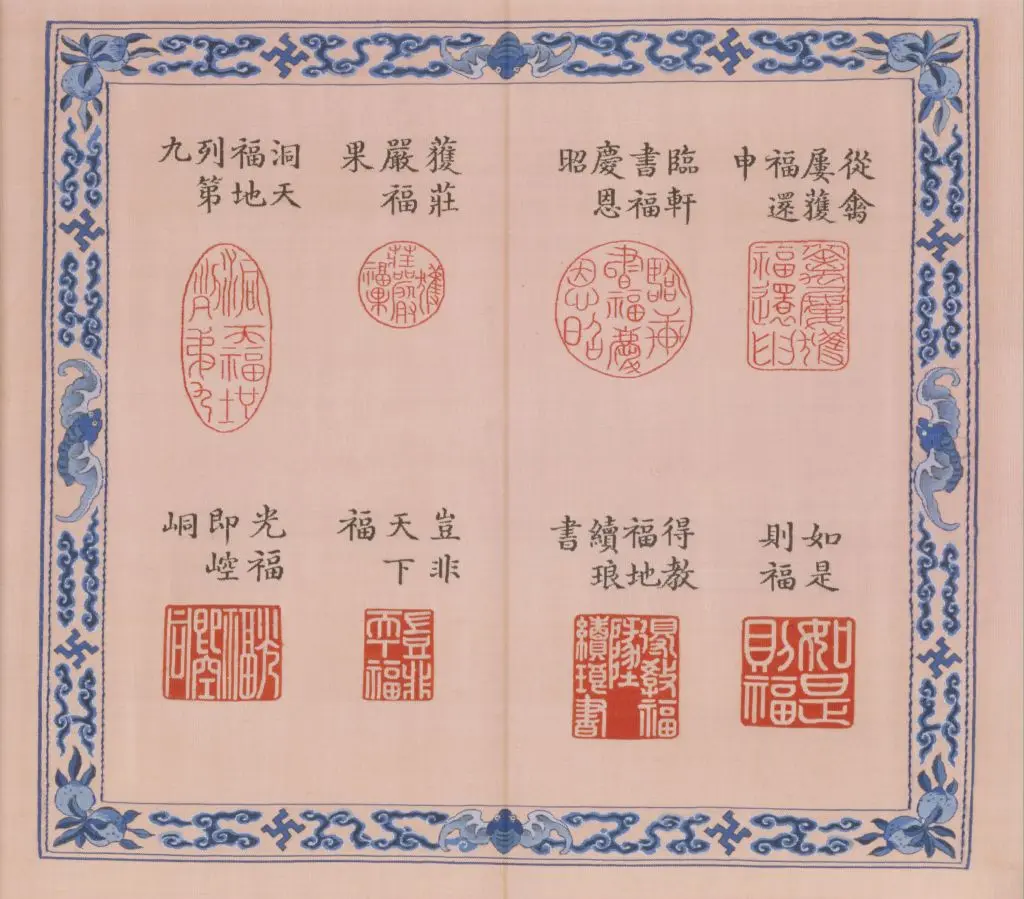 從禽
屢獲
福還
申
臨軒
書福
慶恩
昭
獲莊
嚴福
果
洞天
福地
列第
九
如是
則福
如是
則福
得教
福地
續琅
書
豈非
天下
福
豈非
天下福
光福
即崆
峒